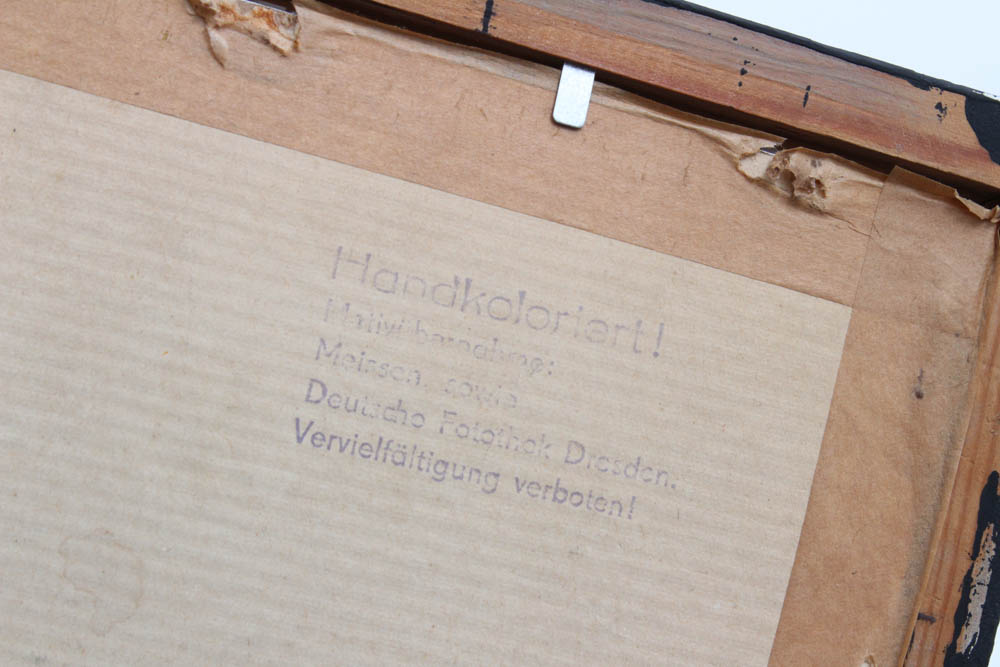 Handkoloriert!
Motivübernahme:
Meissen, sowie
Deutsche Fotothek Dresden.
Vervielfältigung verboten!